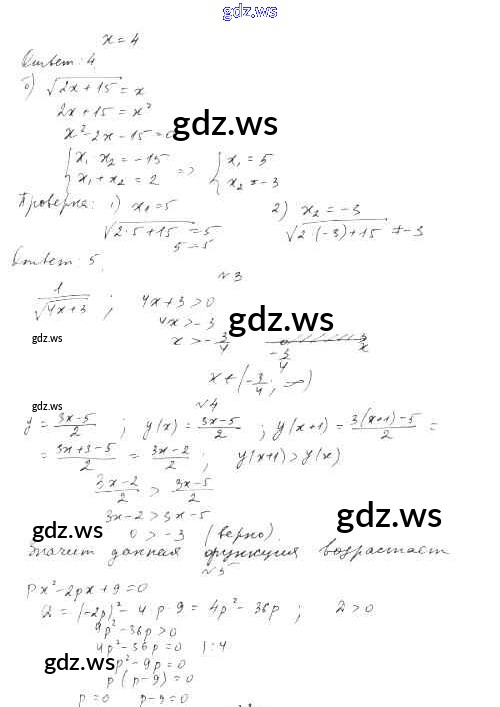 gdz.ws
x = 4
Ответ: 4
б) √(2x + 15) = x
2x + 15 = x²
x² - 2x - 15 = 0
gdz.ws
{ x₁ · x₂ = -15 => { x₁ = 5
x₁ + x₂ = 2 x₂ = -3
Проверка: 1) x₁ = 5 2) x₂ = -3
√(2 · 5 + 15) = 5 √(2 · (-3) + 15) ≠ -3
5 = 5
Ответ: 5.
№3
1/√(4x + 3) ; 4x + 3 > 0
4x > -3
gdz.ws
gdz.ws
x > -3/4 -3/4 x
x ∈ (-3/4; ∞)
gdz.ws
№4
y = (3x - 5)/2 ; y(x) = (3x - 5)/2 ; y(x+1) = (3(x+1) - 5)/2 =
= (3x + 3 - 5)/2 = (3x - 2)/2 ; y(x+1) > y(x)
(3x - 2)/2 > (3x - 5)/2
3x - 2 > 3x - 5
gdz.ws
gdz.ws
0 > -3 (верно).
Значит данная функция возрастает
№5
px² - 2px + 9 = 0
D = (-2p)² - 4 · p · 9 = 4p² - 36p ; D > 0
4p² - 36p > 0
4p² - 36p = 0 | : 4
gdz.ws
p² - 9p = 0
p(p - 9) = 0
p = 0 p - 9 = 0